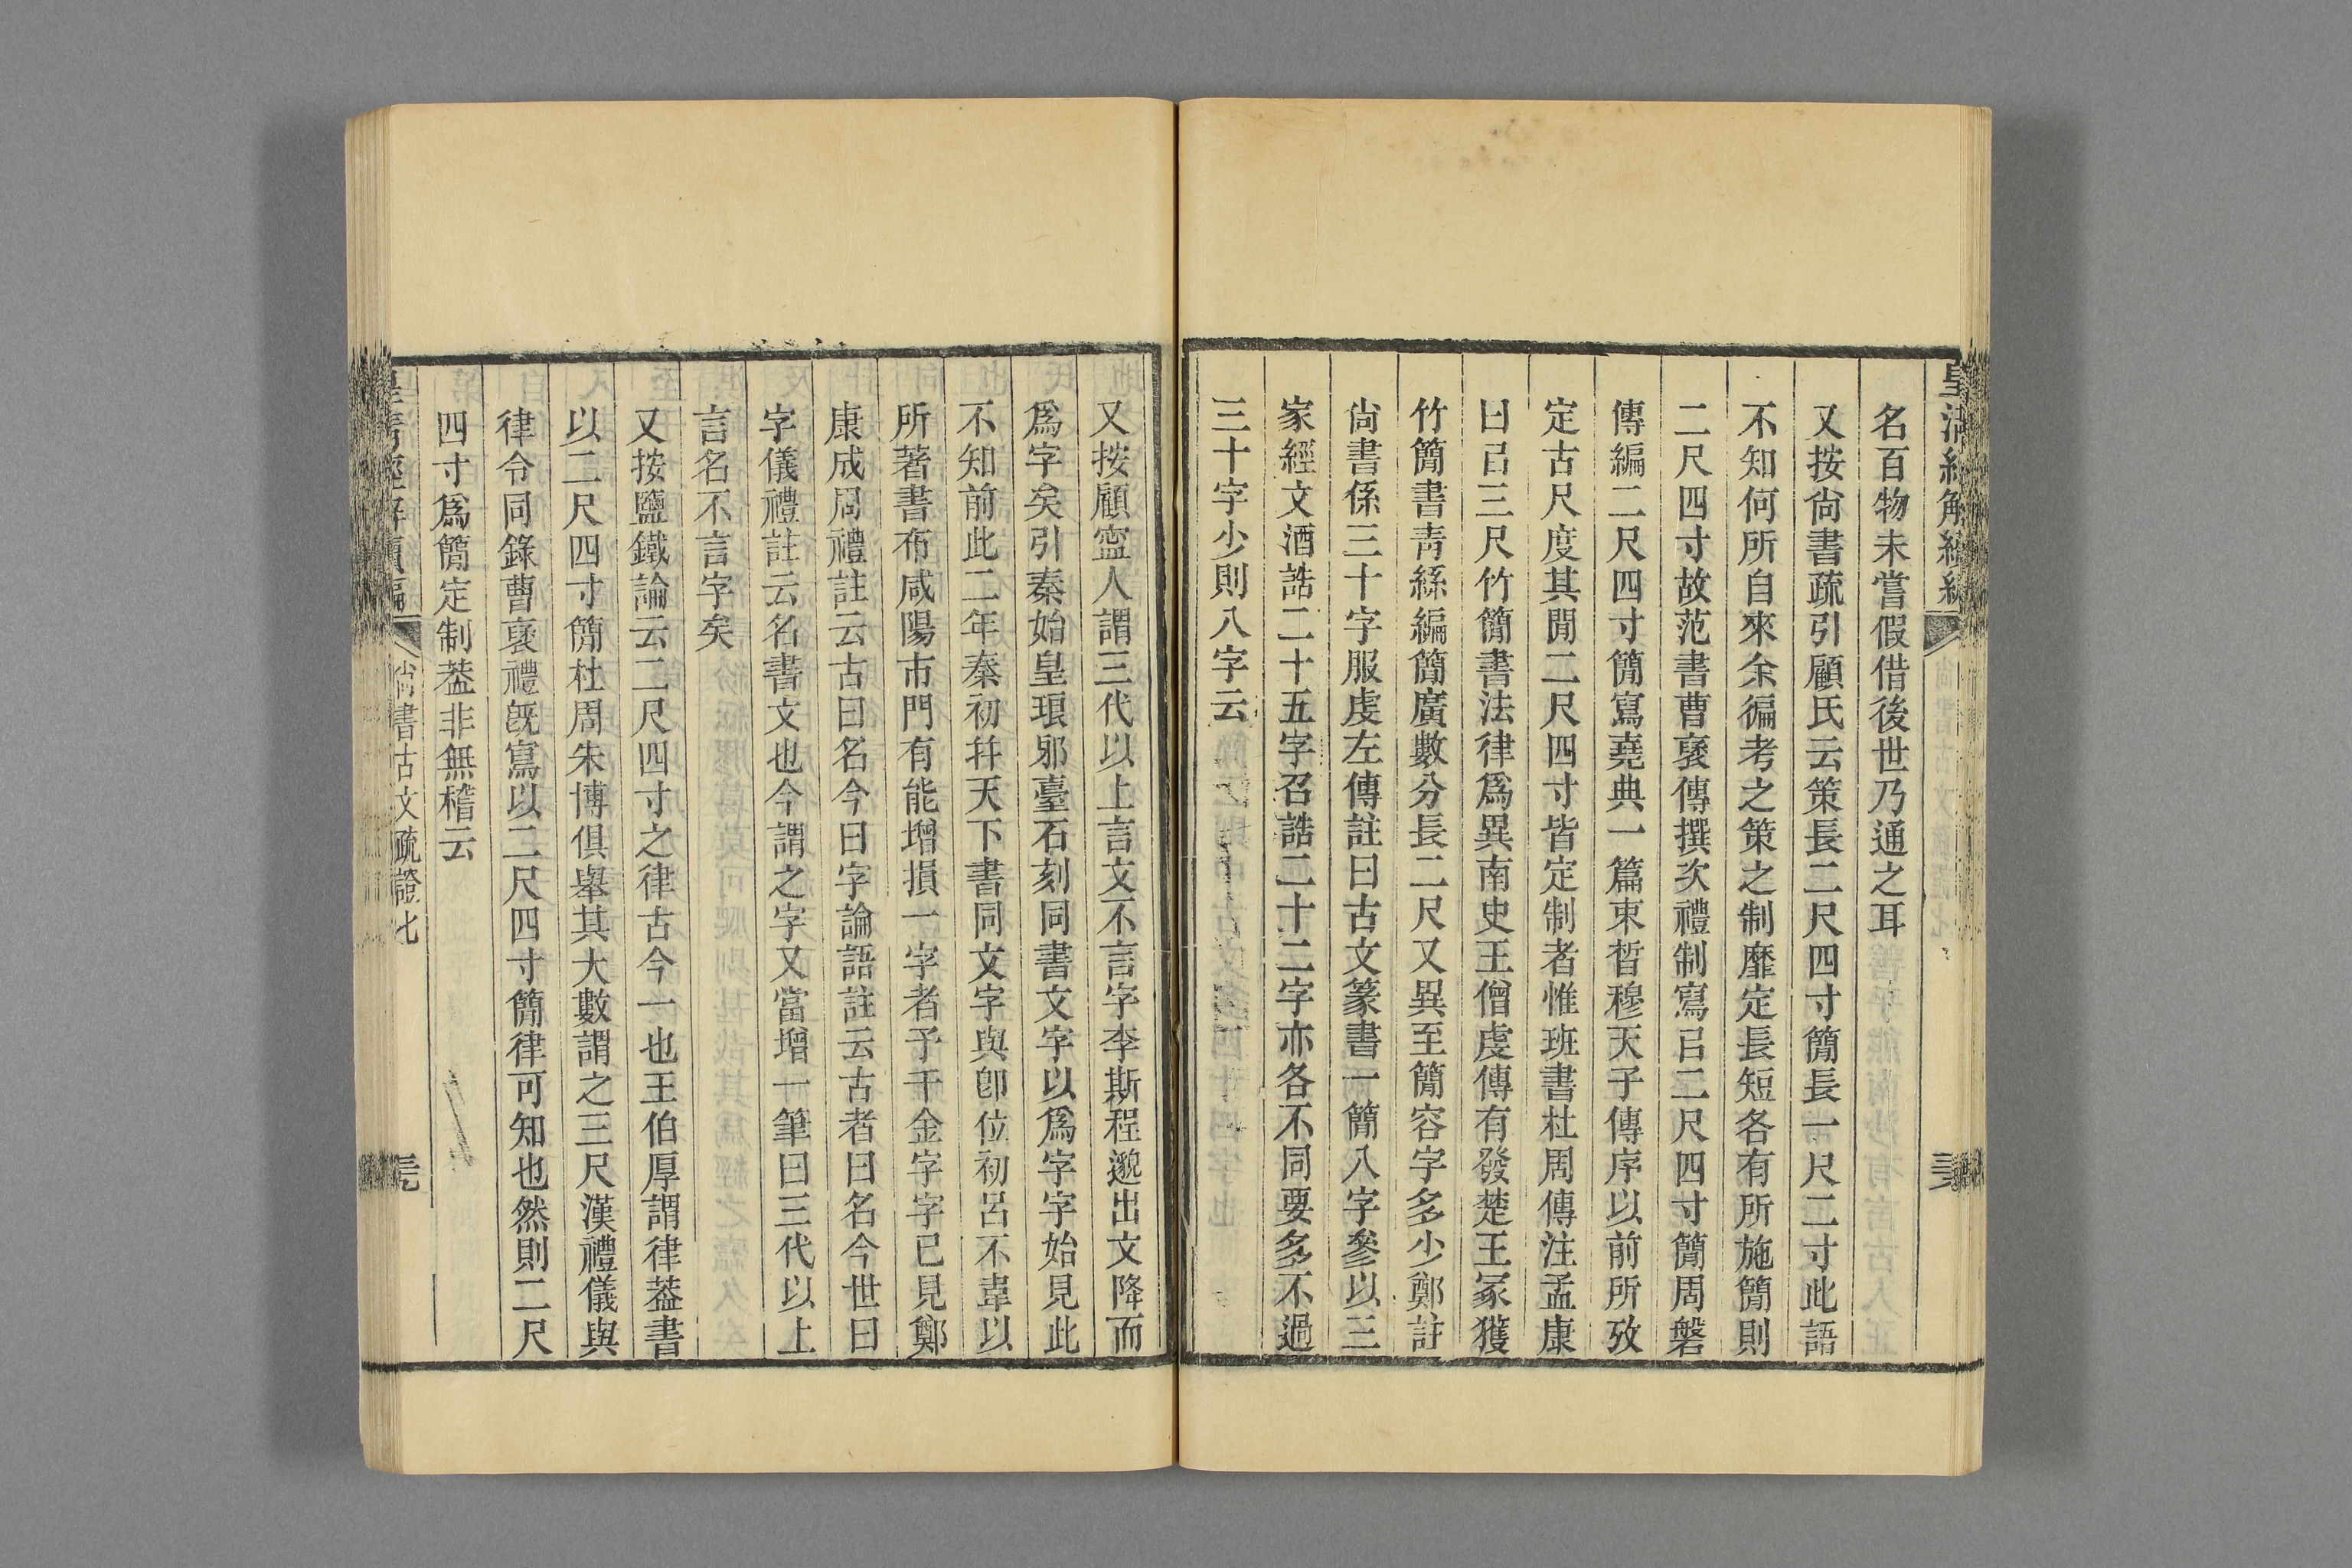 名百物未嘗假借後世乃通之耳
又按尙書疏引顧氏云策長二尺四寸簡長一尺二寸此語
不知何所自來余徧考之策之制靡定長短各有所施簡則
二尺四寸故范書曹襃傳撰次禮制寫㠯二尺四寸簡周磐
傳編二尺四寸簡寫堯典一篇束晳穆天子傳序以前所攷
定古尺度其閒二尺四寸皆定制者惟班書杜周傳注孟康
曰㠯三尺竹簡書法律爲異南史王僧虔傳有發楚王冢獲
竹簡書靑絲編簡廣數分長二尺又異至簡容字多少鄭註
尙書係三十字服虔左傳註曰古文篆書一簡八字參以三
家經文酒誥二十五字召誥二十二字亦各不同要多不過
三十字少則八字云
又按顧寍人謂三代以上言文不言字李斯程邈出文降而
爲字矣引秦始皇琅邪臺石刻同書文字以爲字字始見此
不知前此二年秦初幷天下書同文字與卽位初呂不韋以
所著書布咸陽市門有能增損一字者予千金字字已見鄭
康成周禮註云古曰名今曰字論語註云古者曰名今世曰
字儀禮註云名書文也今謂之字又當增一筆曰三代以上
言名不言字矣
又按鹽鐵論云二尺四寸之律古今一也王伯厚謂律葢書
以二尺四寸簡杜周朱博俱舉其大數謂之三尺漢禮儀與
律令同錄曹襃禮旣寫以二尺四寸簡律可知也然則二尺
四寸爲簡定制葢非無稽云
尙書古文疏證七